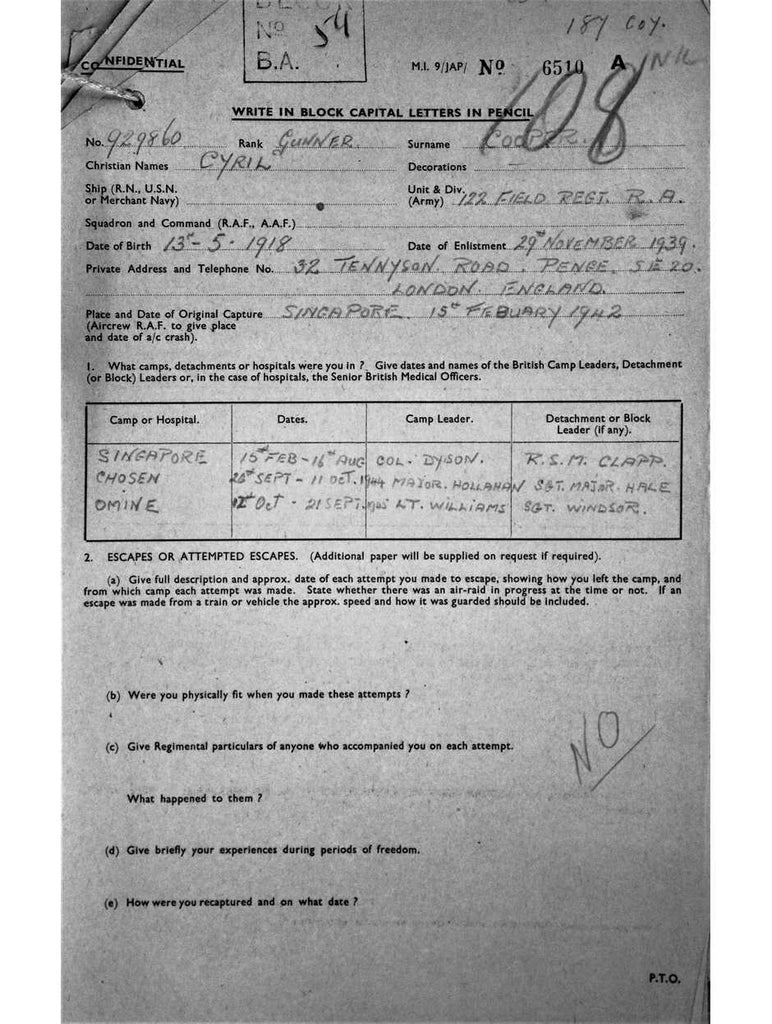 BLOCK
No 54
B.A.
187 COY.
CONFIDENTIAL
M.I. 9/JAP/ No 6510 A
108
WRITE IN BLOCK CAPITAL LETTERS IN PENCIL
No. 929860 Rank GUNNER Surname COOPER.
Christian Names CYRIL Decorations —
Ship (R.N., U.S.N. or Merchant Navy)
Unit & Div. (Army) 122 FIELD REGT. R.A.
Squadron and Command (R.A.F., A.A.F.)
Date of Birth 13th - 5 - 1918 Date of Enlistment 29th NOVEMBER 1939.
Private Address and Telephone No. 32 TENNYSON. ROAD. PENGE. SE 20.
LONDON. ENGLAND.
Place and Date of Original Capture SINGAPORE. 15th FEBUARY 1942
(Aircrew R.A.F. to give place
and date of a/c crash).
1. What camps, detachments or hospitals were you in ? Give dates and names of the British Camp Leaders, Detachment
(or Block) Leaders or, in the case of hospitals, the Senior British Medical Officers.
Camp or Hospital. Dates. Camp Leader. Detachment or Block Leader (if any).
SINGAPORE 15th FEB - 16th AUG COL. DYSON. R.S.M. CLAPP.
CHOSEN 26th SEPT - 11 OCT. 1944 MAJOR. HOLLAHAN SGT. MAJOR. HALE
OMINE 12th OCT - 21 SEPT. 1945 LT. WILLIAMS SGT. WINDSOR.
2. ESCAPES OR ATTEMPTED ESCAPES. (Additional paper will be supplied on request if required).
(a) Give full description and approx. date of each attempt you made to escape, showing how you left the camp, and
from which camp each attempt was made. State whether there was an air-raid in progress at the time or not. If an
escape was made from a train or vehicle the approx. speed and how it was guarded should be included.
(b) Were you physically fit when you made these attempts ?
(c) Give Regimental particulars of anyone who accompanied you on each attempt.
NO
What happened to them ?
(d) Give briefly your experiences during periods of freedom.
(e) How were you recaptured and on what date ?
P.T.O.